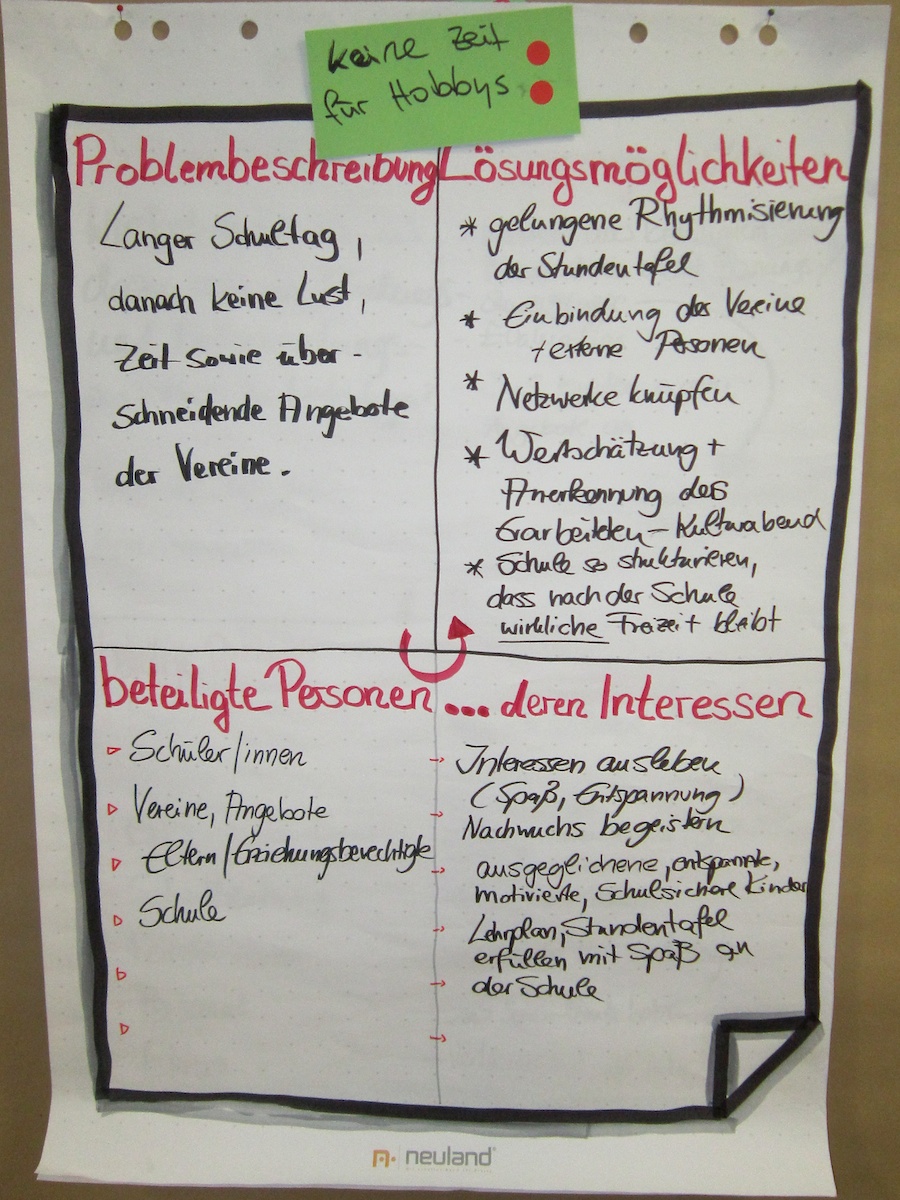 keine Zeit
für Hobbys
Problembeschreibung
Langer Schultag,
danach keine Lust,
Zeit sowie über-
schneidende Angebote
der Vereine.
Lösungsmöglichkeiten
* gelungene Rhythmisierung
der Stundentafel
* Einbindung der Vereine
+ externe Personen
* Netzwerke knüpfen
* Wertschätzung +
Anerkennung des
Erarbeiteten – Kulturabend
* Schule so strukturieren,
dass nach der Schule
wirkliche Freizeit bleibt
beteiligte Personen
Schüler/innen
Vereine, Angebote
Eltern/Erziehungsberechtigte
Schule
... deren Interessen
→ Interessen ausleben
(Spaß, Entspannung)
→ Nachwuchs begeistern
→ ausgeglichene, entspannte,
motivierte, Schulsichere Kinder
→ Lehrplan, Stundentafel
erfüllen mit Spaß an
→ der Schule
→
neuland